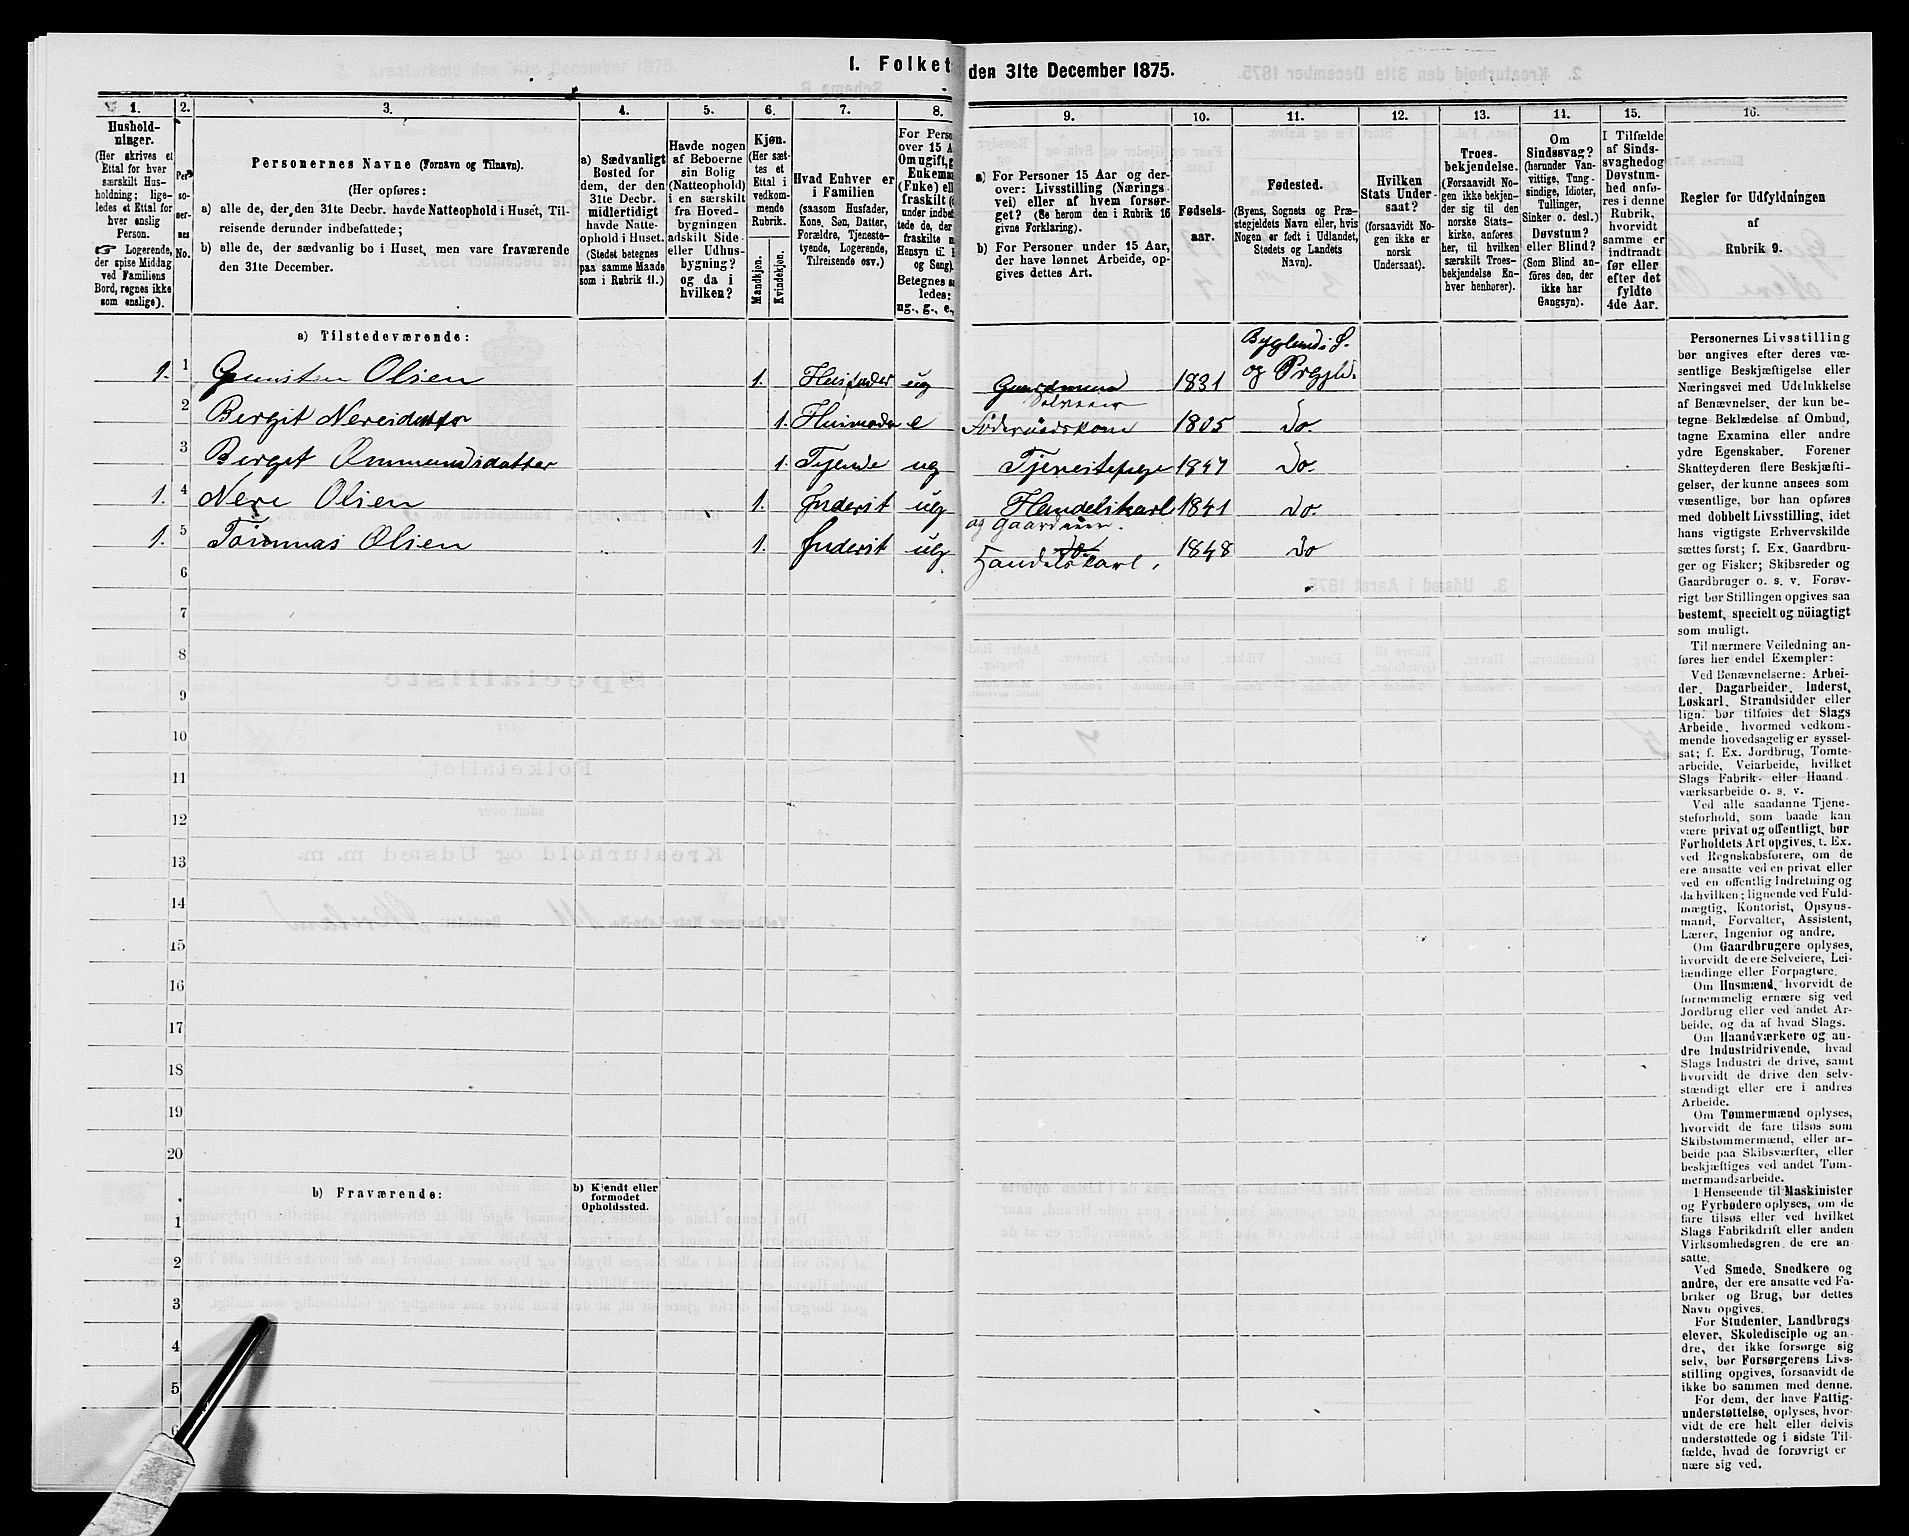 I. Folket
den 31te December 1875.
1.
Hushold-
ninger.
(Her skrives et
Ettal for hver
særskilt Hus-
holdning; lige-
ledes et Ettal for
hver enslig
Person.
☞ Logerende,
der spise Middag
ved Familiens
Bord, regnes ikke
som enslige).
2.
Per-
so-
ner-
nes
No.
3.
Personernes Navne (Fornavn og Tilnavn).
(Her opføres:
a) alle de, der den 31te Decbr. havde Natteophold i Huset, Til-
reisende derunder indbefattede;
b) alle de, der sædvanlig bo i Huset, men vare fraværende
den 31te December.
4.
a) Sædvanligt
Bosted for
dem, der den
31te Decbr.
midlertidigt
havde Natte-
ophold i Huset.
(Stedet betegnes
paa samme Maade
som i Rubrik 11.)
5.
Havde nogen
af Beboerne
sin Bolig
(Natteophold)
i en særskilt
fra Hoved-
bygningen
adskilt Side-
eller Udhus-
bygning?
og da i
hvilken?
6.
Kjøn.
(Her sæt-
tes et
Ettal i
vedkom-
mende
Rubrik.
Mandkjøn.
Kvindekjøn.
7.
Hvad Enhver er
i Familien
(saasom Husfader,
Kone, Søn, Datter,
Forældre, Tjeneste-
tyende, Logerende,
Tilreisende osv.)
8.
For Perso
over 15 A
Om ugift, g
Enkema
(Enke) ell
fraskilt (
under indbe
tede de, de
fraskilte
Hensyn til
og Seng).
Betegnes sa
ledes:
ug., g., e.,
9.
a) For Personer 15 Aar og der-
over: Livsstilling (Nærings-
vei) eller af hvem forsør-
get? (Se herom den i Rubrik 16
givne Forklaring).
b) For Personer under 15 Aar,
der have lønnet Arbeide, op-
gives dettes Art.
10.
Fødsels-
aar.
11.
Fødested.
(Byens, Sognets og Præ-
stegjeldets Navn eller, hvis
Nogen er født i Udlandet,
Stedets og Landets
Navn).
12.
Hvilken
Stats Under-
saat?
(forsaavidt No-
gen ikke er
norsk
Undersaat).
13.
Troes-
bekjendelse.
(Forsaavidt No-
gen ikke bekjen-
der sig til den
norske Stats-
kirke, anføres
her, til hvilken
særskilt Troes-
bekjendelse En-
hver henhører).
14.
Om
Sindssvag?
(herunder Van-
vittige, Tung-
sindige, Idioter,
Tullinger,
Sinker o. desl.)
Døvstum?
eller Blind?
(Som Blind an-
føres den, der
ikke har
Gangsyn).
15.
I Tilfælde
af Sinds-
svaghed og
Døvstum-
hed anfø-
res i denne
Rubrik,
hvorvidt
samme er
indtraadt
før eller
efter det
fyldte
4de Aar.
16.
Regler for Udfyldningen
af
Rubrik 9.
a) Tilstedeværende:
1. 1 Gunsten Olsen 1. Husfader ug Gaardmand Selveier 1831 Bygland S. og Prgjld.
2 Birgit Nereidatter 1. Husmoder e Føderaadskone 1805 Do.
3 Birget Ommundsdatter 1. Tjende ug Tjenestepige 1847 Do.
1. 4 Nere Olsen 1. Inderst ug Handelskarl og Gaardmann. 1841 Do.
1. 5 Tomas Olsen 1. Inderst ug Do. Handelskarl. 1848 Do
6
7
8
9
10
11
12
13
14
15
16
17
18
19
20
b) Fraværende:
b) Kjendt eller
formodet
Opholdssted.
1
2
3
4
5
6
Personernes Livsstilling
bør angives efter deres væ-
sentlige Beskjæftigelse eller
Næringsvei med Udelukkelse
af Benævnelser, der kun be-
tegne Beklædelse af Ombud,
tagne Examina eller andre
ydre Egenskaber. Forener
Skatteyderen flere Beskjæfti-
gelser, der kunne ansees som
væsentlige, bør han opføres
med dobbelt Livsstilling, idet
hans vigtigste Erhvervskilde
sættes først; f. Ex. Gaardbru-
ger og Fisker; Skibsreder og
Gaardbruger o. s. v. Forøv-
rigt bør Stillingen opgives saa
bestemt, specielt og nöiagtigt
som muligt.
Til nærmere Veiledning an-
føres her endel Exempler:
Ved Benævnelserne: Arbei-
der, Dagarbeider, Inderst,
Løskarl, Strandsidder eller
lign. bør tilføies det Slags
Arbeide, hvormed vedkom-
mende hovedsagelig er syssel-
sat; f. Ex. Jordbrug, Tomte-
arbeide, Veiarbeide, hvilket
Slags Fabrik- eller Haand-
værksarbeide o. s. v.
Ved alle saadanne Tjene-
steforhold, som baade kan
være privat og offentligt, bør
Forholdets Art opgives, t. Ex.
ved Regnskabsførere, om de
ere ansatte ved en privat eller
ved en offentlig Indretning og
da hvilken; lignende ved Fuld-
mægtig, Kontorist, Opsyns-
mand, Forvalter, Assistent,
Lærer, Ingeniør og andre.
Om Gaardbrugere oplyses,
hvorvidt de ere Selveiere, Lei-
lændinge eller Forpagtere.
Om Husmænd, hvorvidt de
fornemmelig ernære sig ved
Jordbrug eller ved andet Ar-
beide, og da af hvad Slags.
Om Haandværkere og an-
dre Industridrivende, hvad
Slags Industri de drive, samt
hvorvidt de drive den selv-
stændigt eller ere i andres
Arbeide.
Om Tømmermænd oplyses,
hvorvidt de fare tilsøs som
Skibstømmermænd, eller ar-
beide paa Skibsværfter, eller
beskjæftiges ved andet Tøm-
mermandsarbeide.
I Henseende til Maskinister
og Fyrbødere oplyses, om de
fare tilsøs eller ved hvilket
Slags Fabrikdrift eller anden
Virksomhedsgren de ere an-
satte.
Ved Smede, Snedkere og
andre, der ere ansatte ved Fa-
briker og Brug, bør dettes
Navn opgives.
For Studenter, Landbrugs-
elever, Skoledisciple og an-
dre, der ikke forsørge sig
selv, bør Forsørgerens Livs-
stilling opgives, forsaavidt de
ikke bo sammen med denne.
For dem, der have Fattig-
understøttelse, oplyses, hvor-
vidt de ere helt eller delvis
understøttede og i sidste Til-
fælde, hvad de forøvrigt er-
nære sig ved.